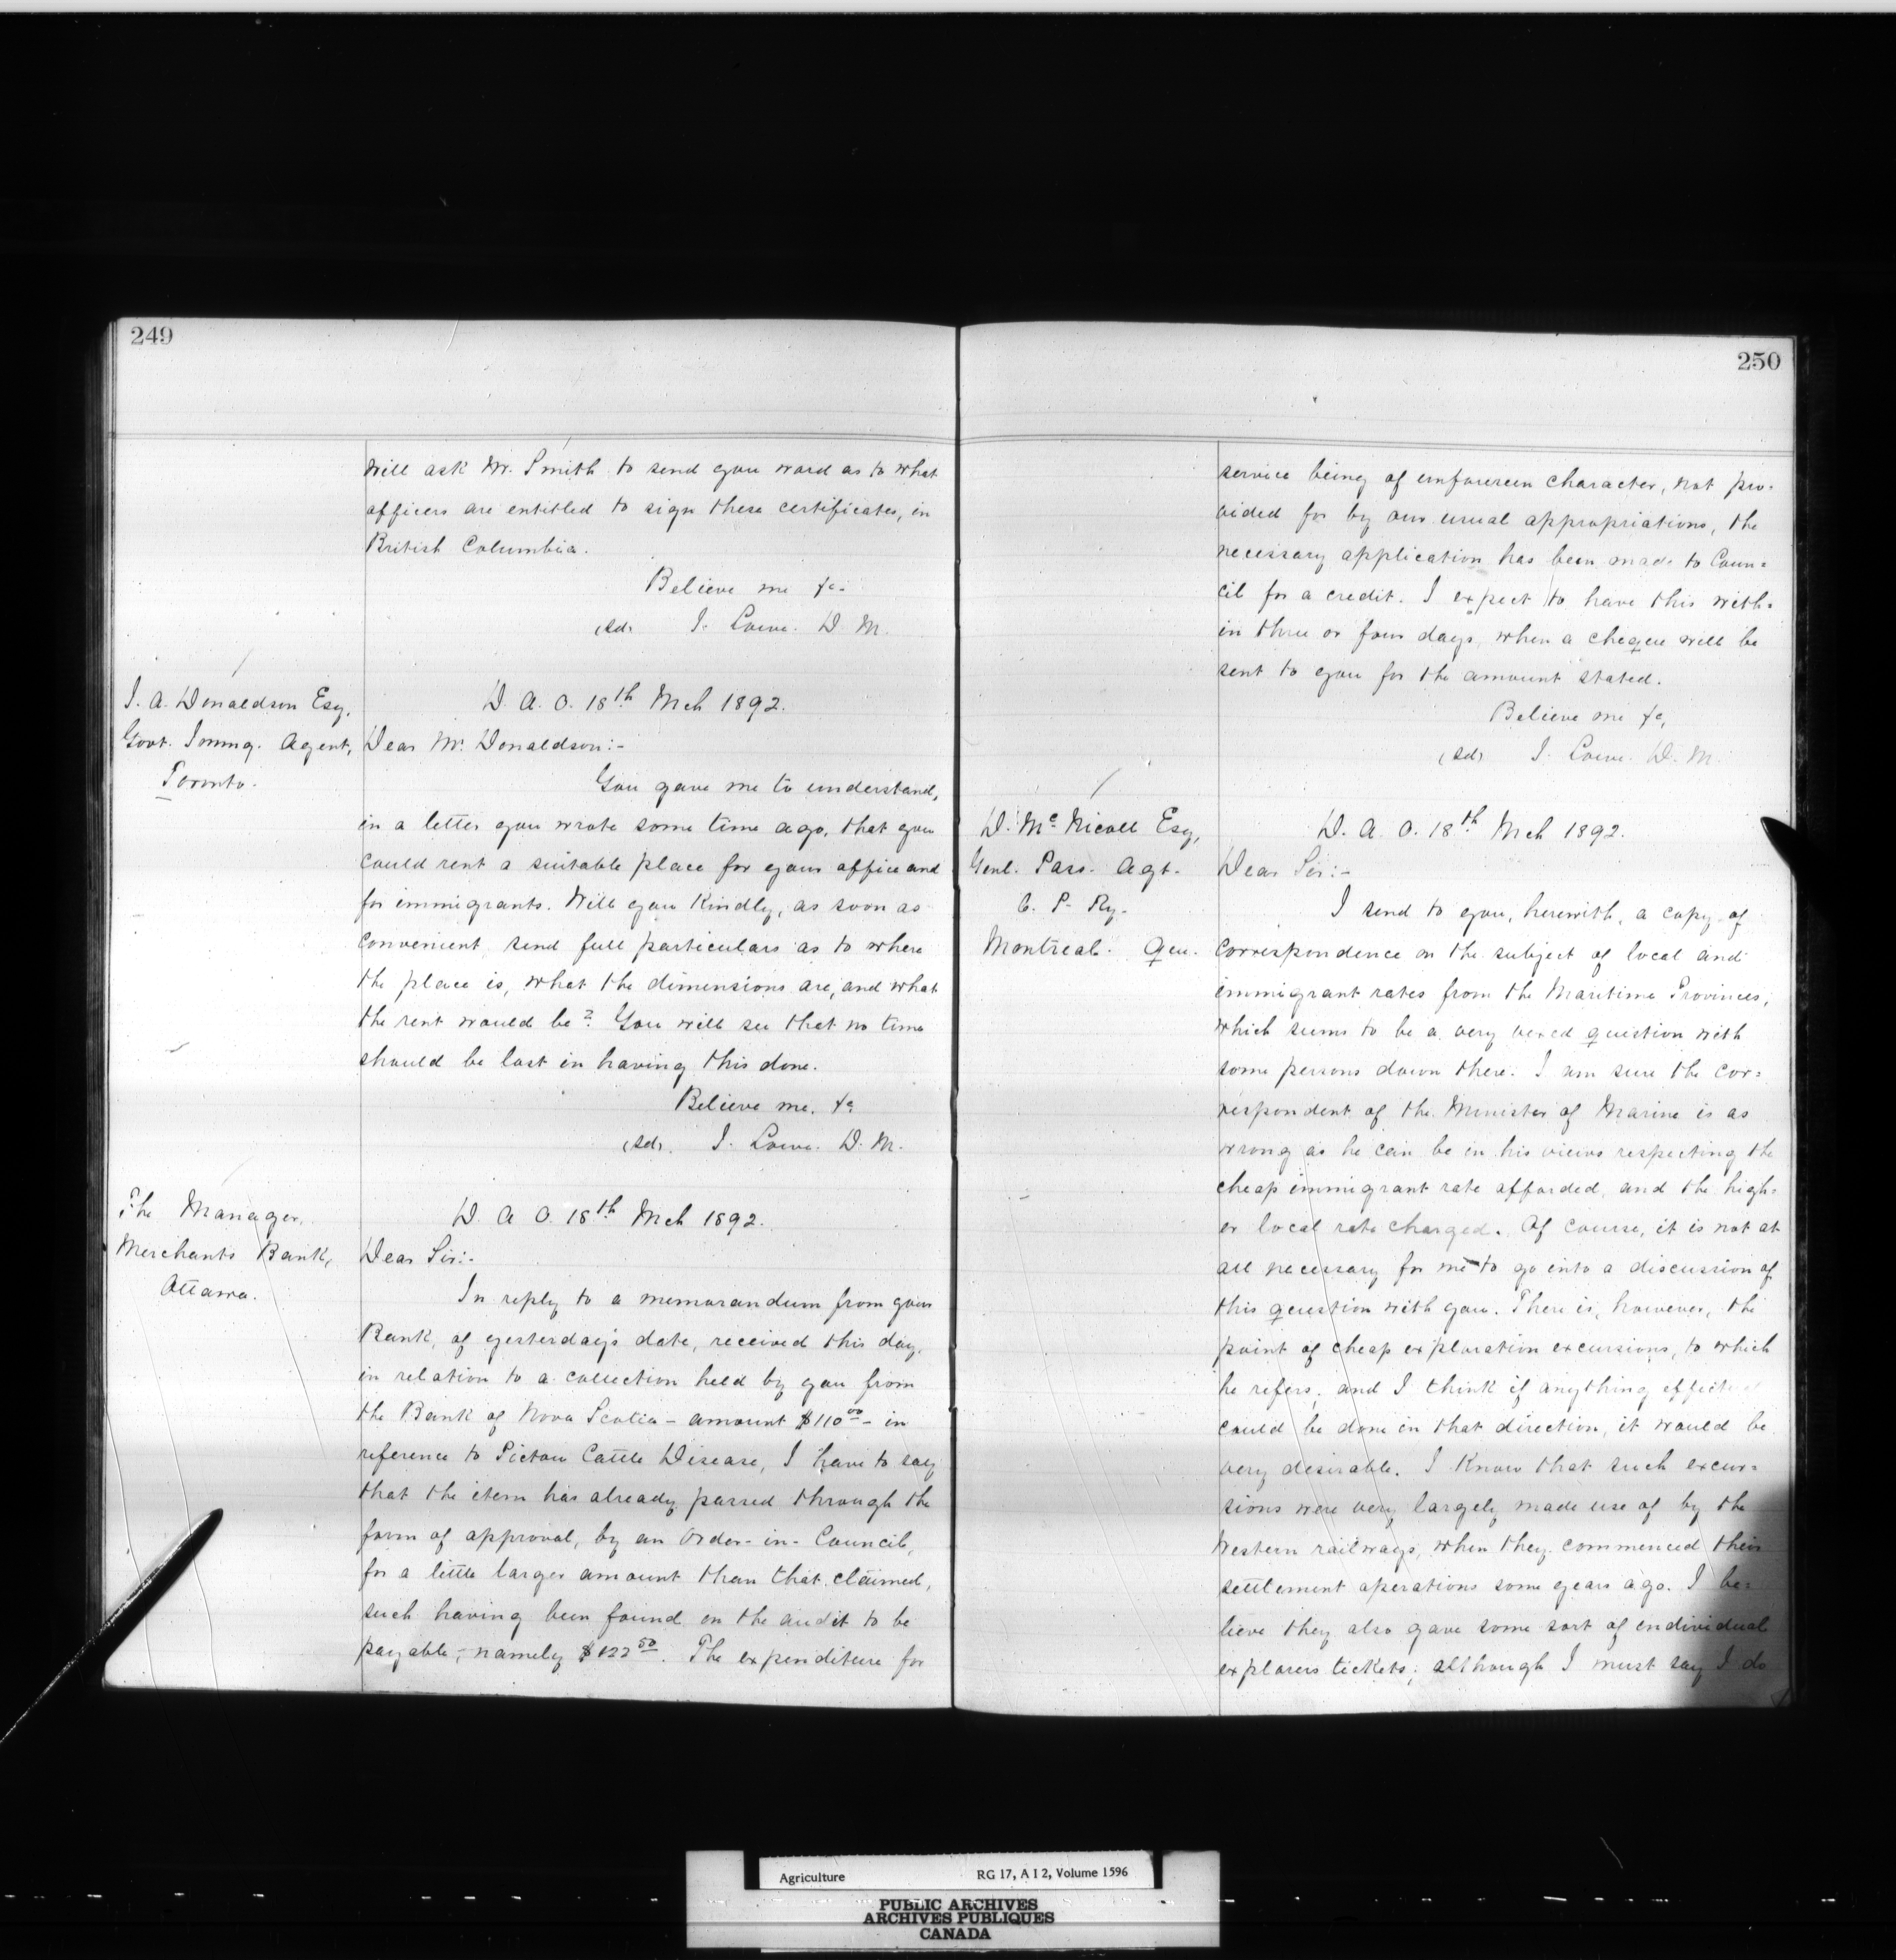 249
will ask Mr. Smith to send you word as to what
officers are entitled to sign these certificates, in
British Columbia.
Believe me &c.
(Sd) J. Lowe. D. M.
J. A. Donaldson Esq,
Govt. Immg. Agent,
Toronto.
D. A. O. 18th Mch 1892.
Dear Mr Donaldson:-
You gave me to understand,
in a letter you wrote some time ago, that you
could rent a suitable place for your office and
for immigrants. Will you kindly, as soon as
convenient, send full particulars as to where
the place is, what the dimensions are, and what
the rent would be? You will see that no time
should be lost in having this done.
Believe me, &c
(Sd). J. Lowe. D. M.
The Manager,
Merchants Bank,
Ottawa.
D. A. O. 18th Mch 1892.
Dear Sir:-
In reply to a memorandum from your
Bank, of yesterday's date, received this day,
in relation to a collection held by you from
the Bank of Nova Scotia - amount $110 00 - in
reference to Pictou Cattle Disease, I have to say
that the item has already passed through the
form of approval, by an Order-in-Council,
for a little larger amount than that claimed,
such having been found on the audit to be
payable,- namely $122 50. The expenditure for
250
service being of unforseen character, not pro-
vided for by our usual appropriations, the
necessary application has been made to Coun=
cil for a credit. I expect to have this with=
in three or four days, when a cheque will be
sent to you for the amount stated.
Believe me &c,
(Sd) J. Lowe. D. M.
D. Mc Nicoll Esq,
Genl. Pass. Agt.
C. P. Ry.
Montreal. Que.
D. A. O. 18th Mch 1892.
Dear Sir:-
I send to you, herewith, a copy of
correspondence on the subject of local and
immigrant rates from the Maritime Provinces,
which seems to be a very vexed question with
some persons down there. I am sure the cor=
respondent of the Minister of Marine is as
wrong as he can be in his views respecting the
cheap immigrant rate afforded, and the high=
er local rate charged. Of course, it is not at
all necessary for me to go into a discussion of
this question with you. There is, however, the
point of cheap exploration excursions, to which
he refers; and I think if anything effectual
could be done in that direction, it would be
very desirable. I know that such excur=
sions were very largely made use of by the
Western railways, when they commenced their
settlement operations some years ago. I be=
lieve they also gave some sort of individual
explorers tickets; although I must say I do
Agriculture RG 17, A I 2, Volume 1596
PUBLIC ARCHIVES
ARCHIVES PUBLIQUES
CANADA